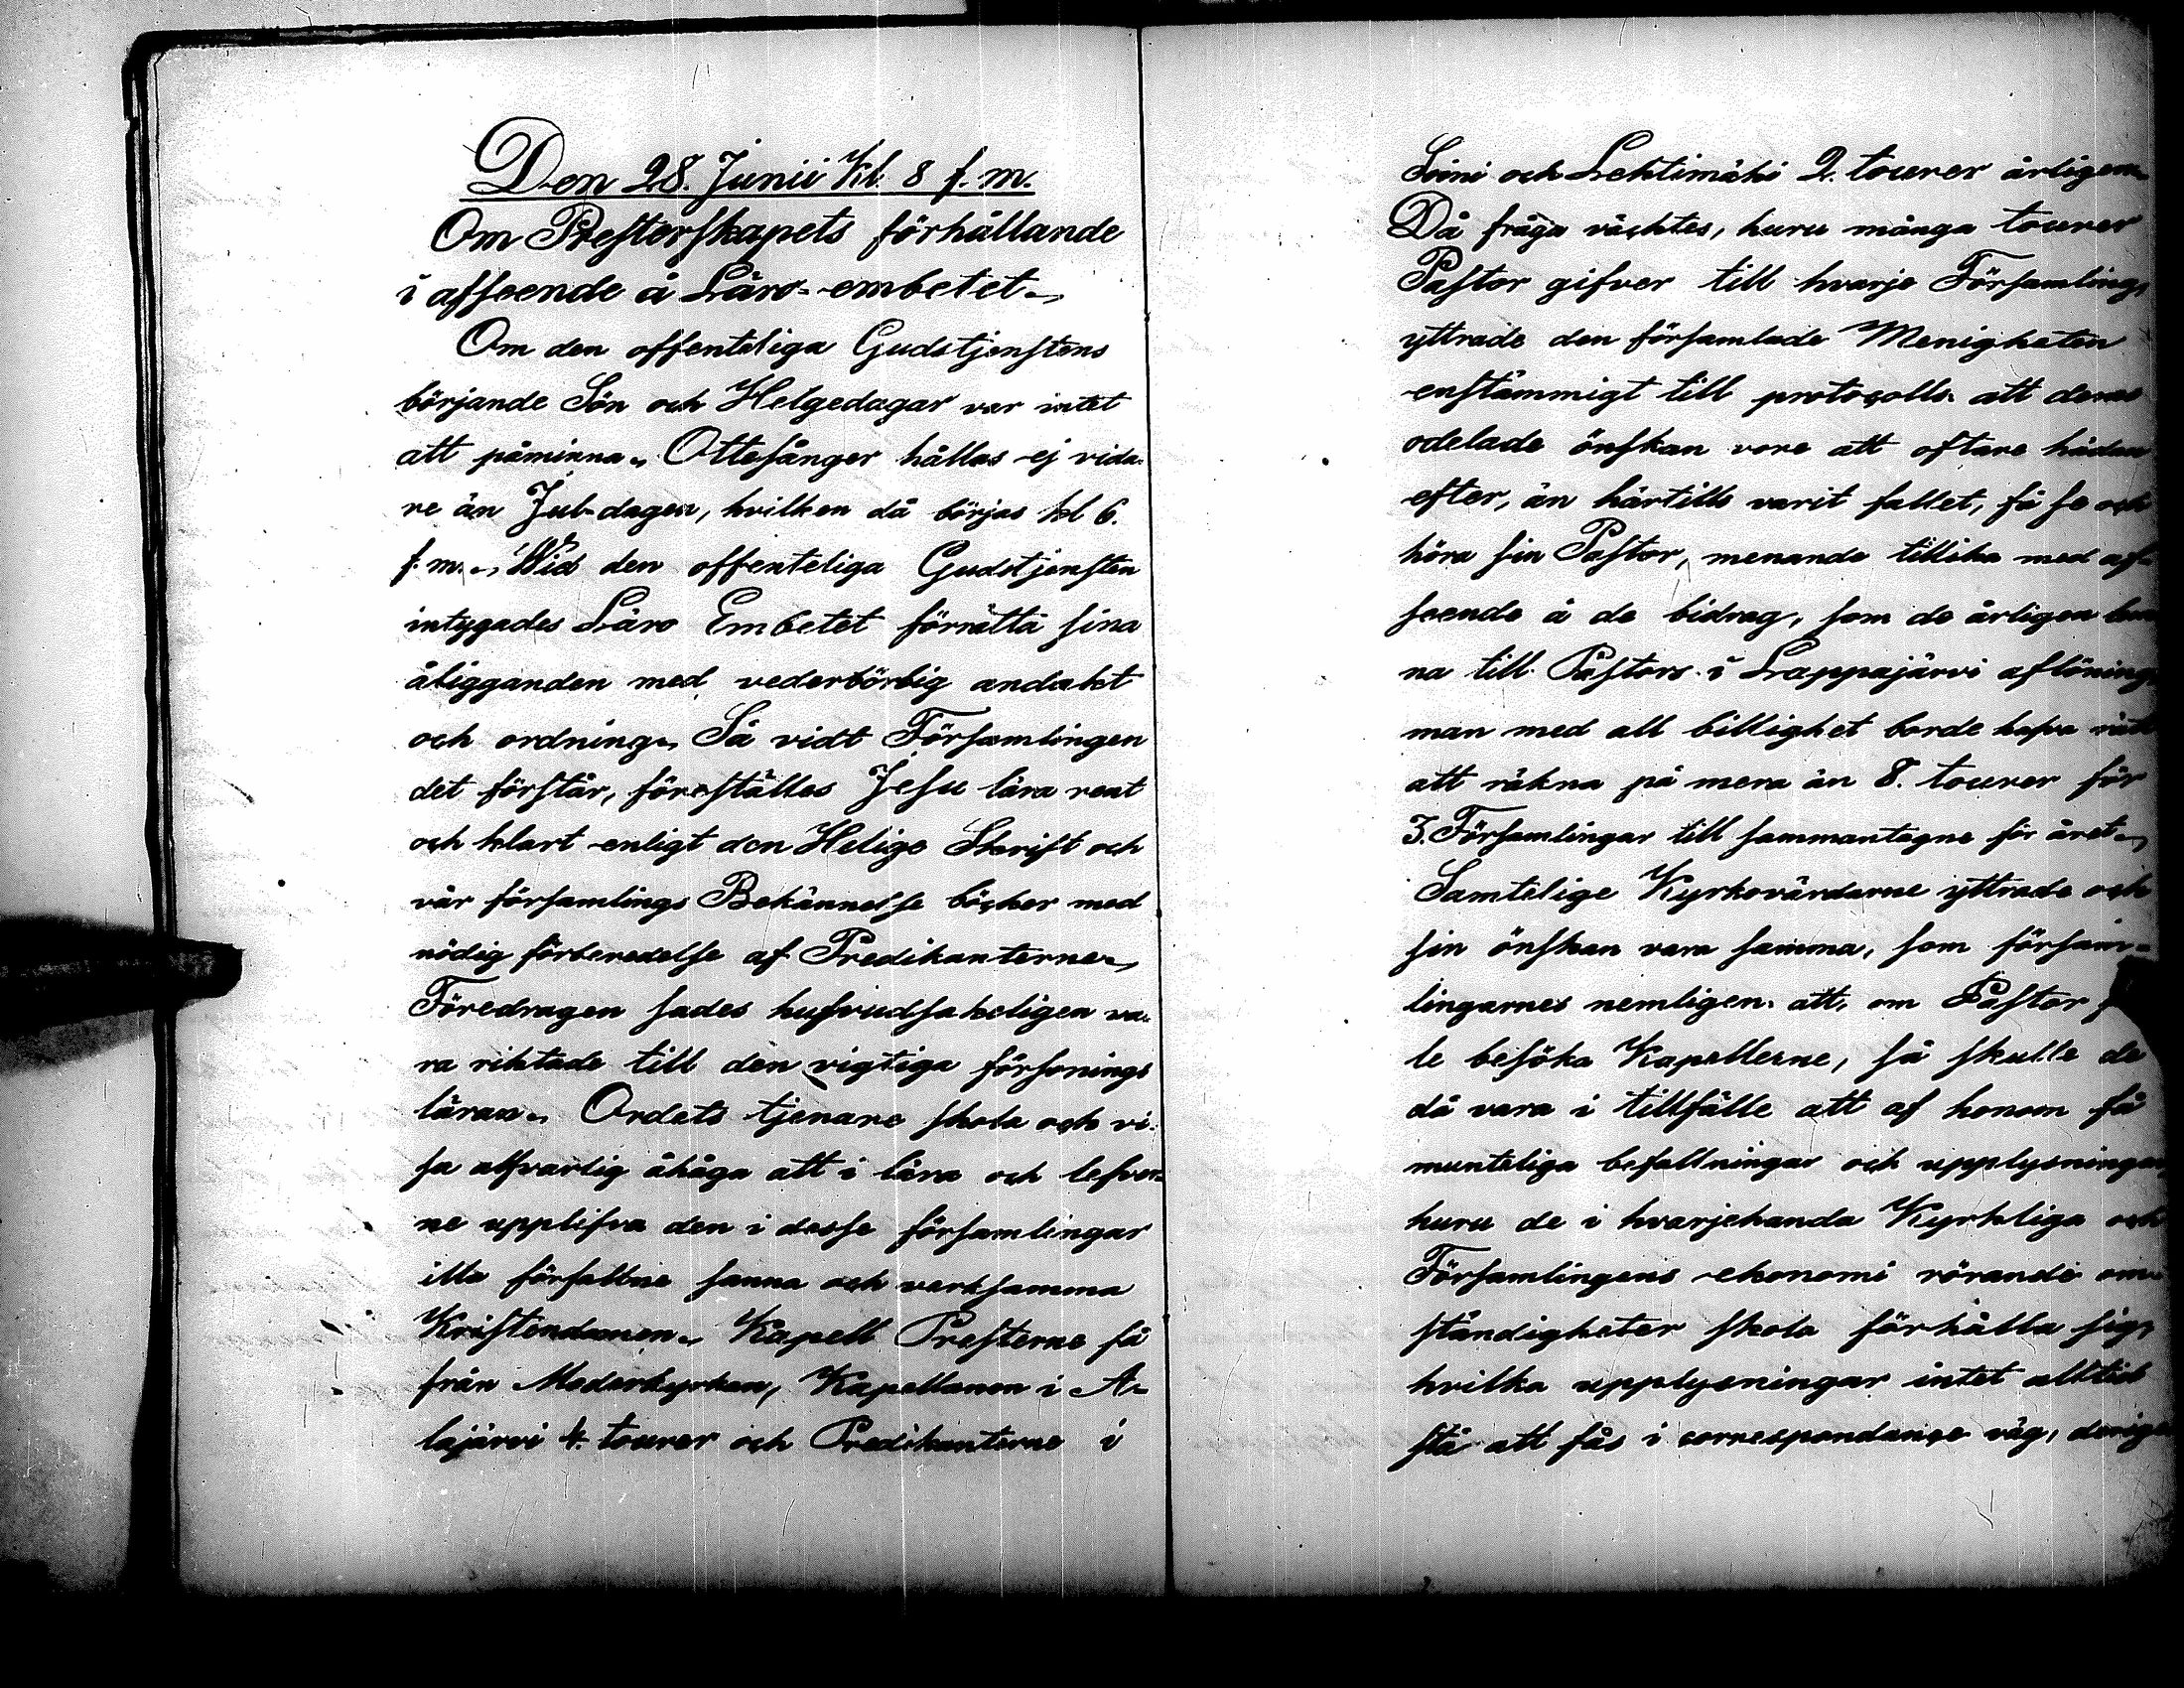 Den 28. Junii Kl. 8 f. m.
Om Presterskapets förhållande
i afseende å Läro-embetet.
Om den offenteliga Gudstjenstens
börjande Sön och Helgedagar var intet
att påminna. Ottesånger hållas ej vida-
re än Jul-dagen, hvilken då börjas kl 6.
f. m. Wid den offenteliga Gudstjensten
intygades Läro Embetet förrätta sina
åligganden med vederbörlig andakt
och ordning. Så vidt Församlingen
det förstår, föreställes Jesu lära rent
och klart enligt den Helige Skrift och
vår församlings Bekännelse böcker med
nödig förberedelse af Predikanterne.
Föredragen sades hufvudsakeligen va-
ra riktade till den vigtiga försonings
läran. Ordets tjenare skola och vi-
sa alfvarlig åhåga att i lära och lefver-
ne upplifva den i desse församlingar
illa förfallne sanna och verksamma
Kristendomen. Kapell Presterne få
från Moderkyrkan, Kapellanen i A-
lajärvi 4. tourer och Predikanterne i
Soini och Lehtimäki 2. tourer årligen.
Då fråga väcktes, huru många tourer
Pastor gifver till hvarje Församling,
yttrade den församlade Menigheten
enstämmigt till protocolls att deras
odelade önskan vore att oftare hädan
efter, än härtills varit fallet, få se och
höra sin Pastor, menande tillika med af-
seende å de bidrag, som de årligen
na till Pastors i Lappajärvi aflöning,
man med all billighet borde hafva rätt
att räkna på mera än 8. tourer för
3. Församlingar till sammantagne för året.
Samtelige Kyrkovärdarne yttrade och
sin önskan vara samma, som försam-
lingarnes nemligen att, om Pastor
le besöka Kapellerne, så skulle de
då vara i tillfälle att af honom få
munteliga befallningar och upplysningar,
huru de i hvarjehanda Kyrkliga och
Församlingens ekonomi rörande om-
ständigheter skola förhålla sig,
hvilka upplysningar intet alltid
stå att fås i correspondance väg,